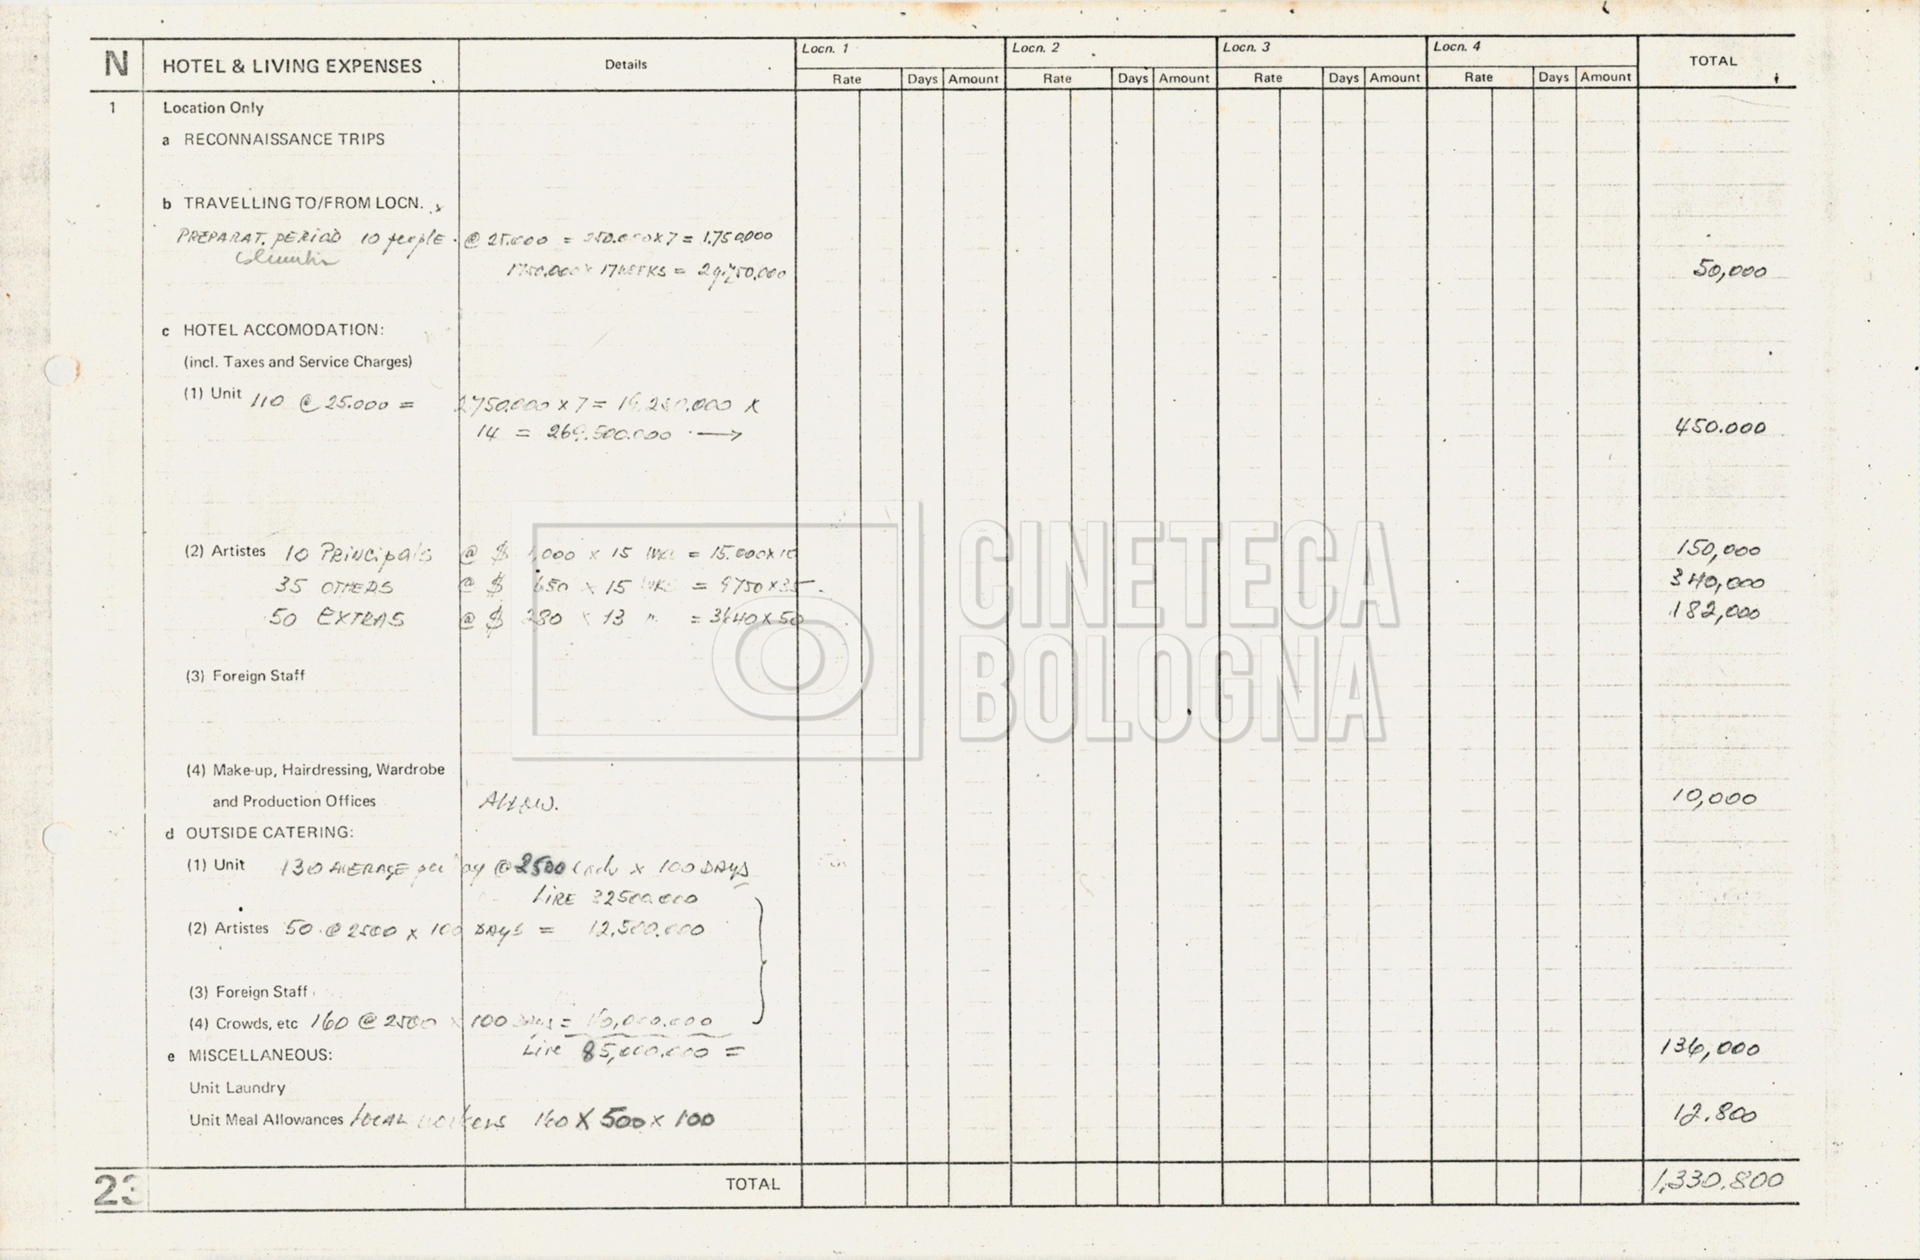 N HOTEL & LIVING EXPENSES Details Locn. 1 Locn. 2 Locn. 3 Locn. 4 TOTAL
Rate Days Amount Rate Days Amount Rate Days Amount Rate Days Amount
1 Location Only
a RECONNAISSANCE TRIPS
b TRAVELLING TO/FROM LOCN.
PREPARAT. PERIOD 10 people @ 25.000 = 250.000 x 7 = 1.750,000
1750,000 x 17 WEEKS = 29,750,000 50,000
c HOTEL ACCOMODATION:
(incl. Taxes and Service Charges)
(1) Unit 110 @ 25.000 = 2750.000 x 7 = 19,250.000 x
14 = 269.500.000 → 450.000
(2) Artistes 10 Principals @ $ 1,000 x 15 WKS = 15.000 x 10 150,000
35 OTHERS @ $ 650 x 15 WKS = 9750 x 35 340,000
50 EXTRAS @ $ 280 x 13 " = 3640 x 50 182,000
CINETECA
BOLOGNA
(3) Foreign Staff
(4) Make-up, Hairdressing, Wardrobe
and Production Offices ALLOW. 10,000
d OUTSIDE CATERING:
(1) Unit 130 AVERAGE per day @ 2500 each x 100 DAYS
LIRE 32500.000
(2) Artistes 50 @ 2500 x 100 DAYS = 12,500.000
(3) Foreign Staff
(4) Crowds, etc 160 @ 2500 x 100 DAYS =
Lire 85,000.000 = 136,000
e MISCELLANEOUS:
Unit Laundry
Unit Meal Allowances LOCAL workers 160 X 500 x 100 12.800
23 TOTAL 1,330.800